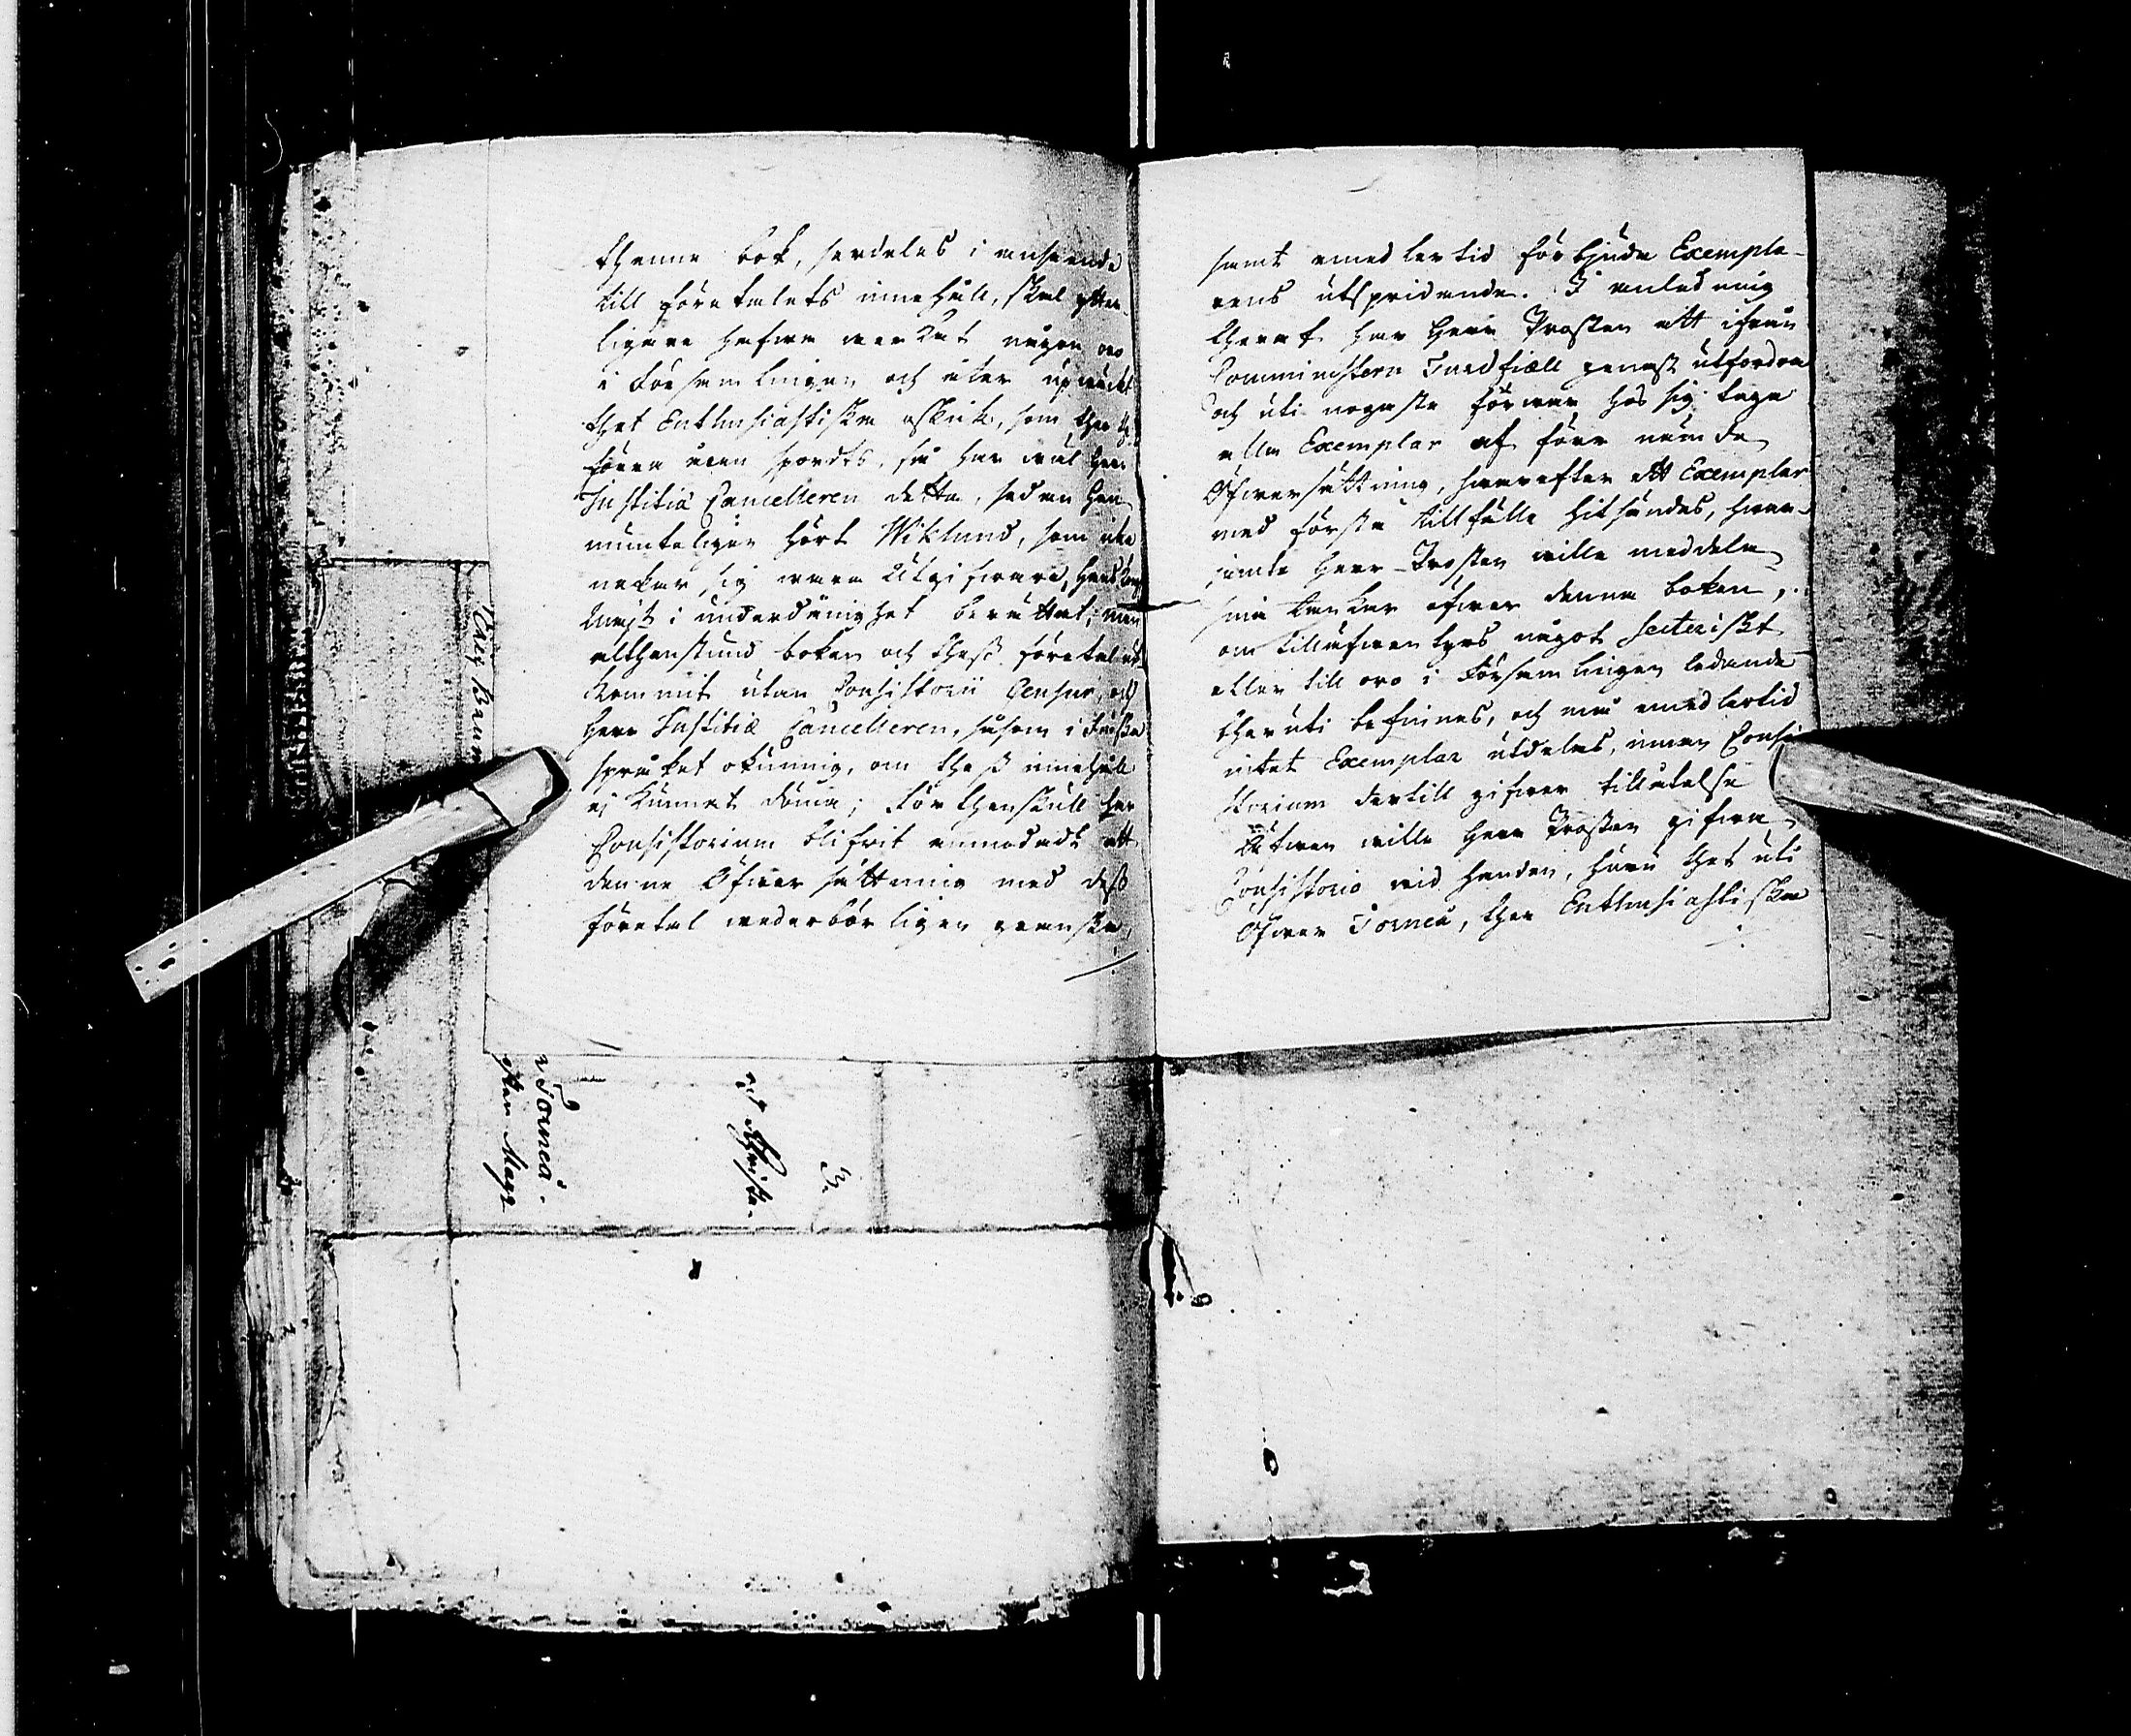 thenna bok, serdeles i anseende
till företalets innehåll, skal ytter-
ligare hafwa wärkat någon oro
i Församlingen och åter upwäckt
thet Enthusiastiska oskick, som ther
förra åren spordts, så har wäl Herr
Justitiæ Cancelleren detta, sedan han
munteligen hört Wiklund, som icke
nekar sig wara Utgifware, Hans Kongl
Maj:t i underdånighet berättat; men
althenstund boken och thess företal ut-
kommit utan Consistorii Censur, och
Herr Justitiæ Cancelleren, såsom i Finska
språket okunnig, om thess innehåll
ej kunnat döma; För thenskull har
Consistorium blifwit anmodadt att
denna Öfwersättning med dess
företal wederbörligen granska,
samt emedlertid förbjuda Exempla-
rens utspridande. I anledning
theraf har Herr Prosten att ifrån
Comministern Turdfiæll genast utfordra
och uti nogaste förwar hos sig taga
alla Exemplar af förenämnda
Öfwersättning, hwarefter Ett Exemplar
med första tillfälle hitsändes, hwar-
jämte Herr Prosten wille meddela
sina tankar öfwer denna boken,
om tilläfwentyrs något secteriskt
eller till oro i Församlingen ledande
theruti befinnes, och må emedlertid
intet Exemplar utdelas, innan Consi-
storium dertill gifwer tillåtelse
Äfwen wille Herr Prosten gifwa
Consistorio wid handen, huru thet uti
Öfwer Torneå, ther Enthusiastiska
Torneå.